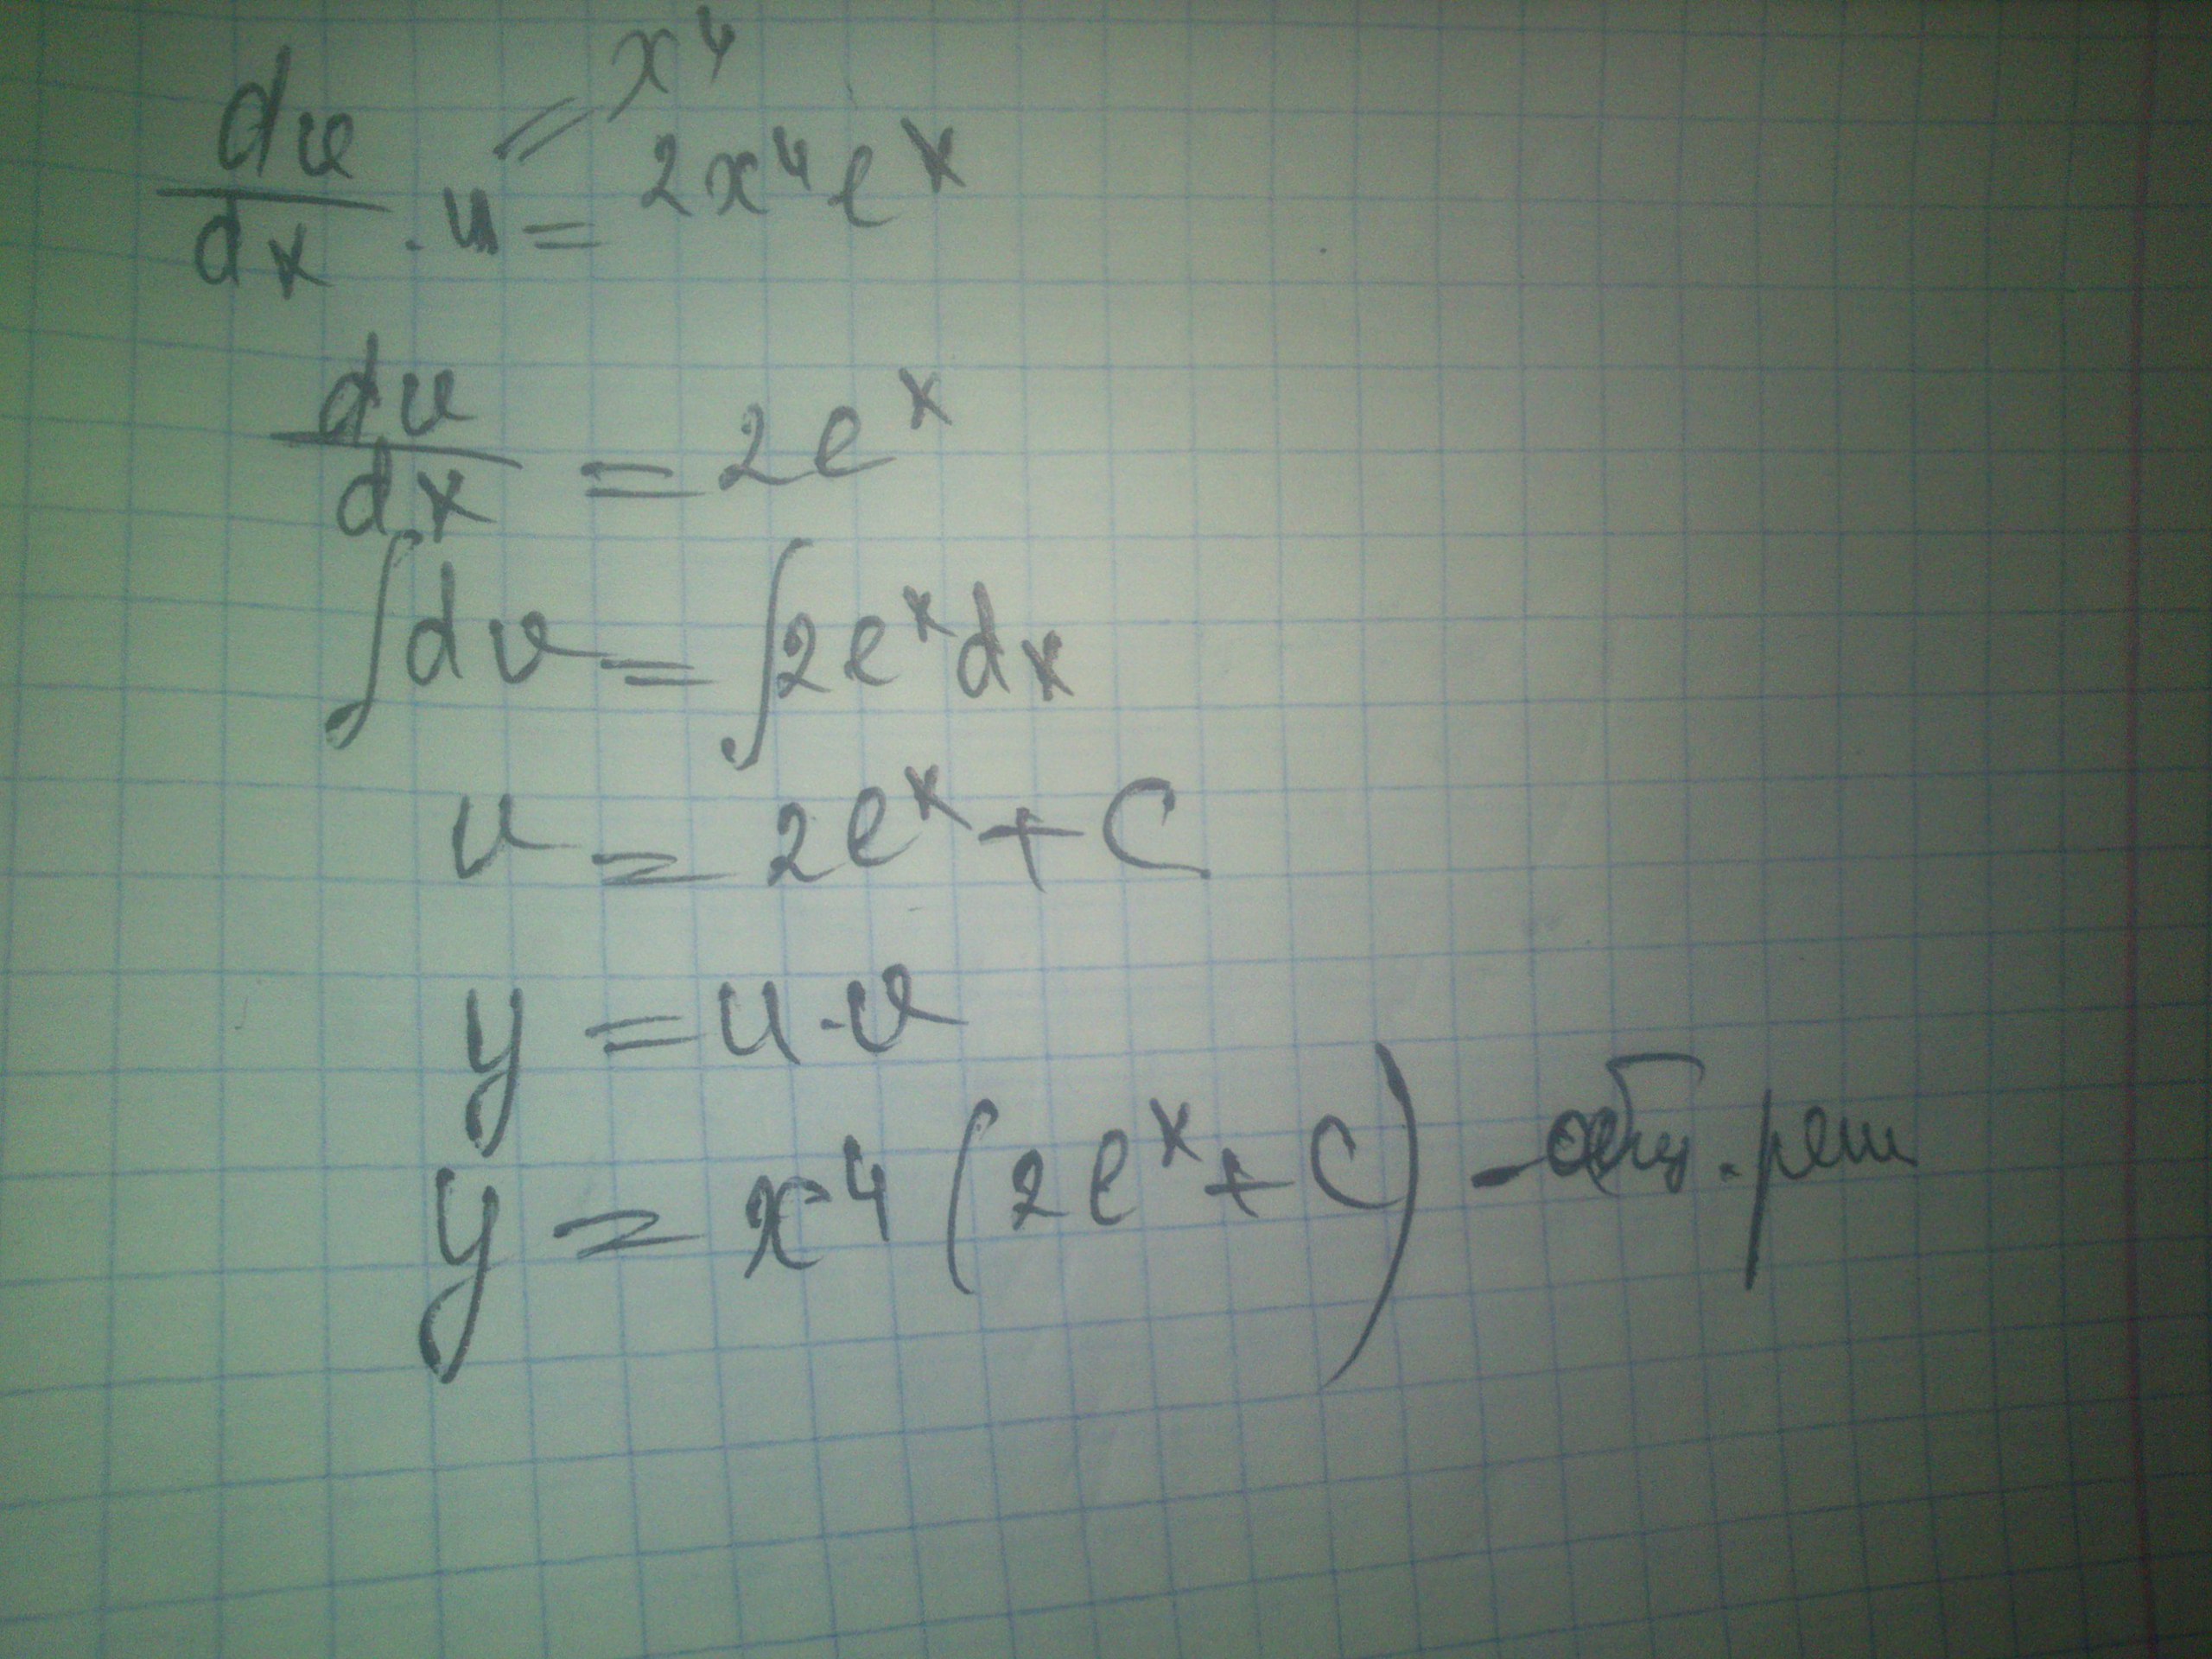 dv/dx · u = 2x⁴eˣ
= x⁴
dv/dx = 2eˣ
∫dv = ∫2eˣdx
v = 2eˣ + C
y = u · v
y = x⁴(2eˣ + C) - общ. реш